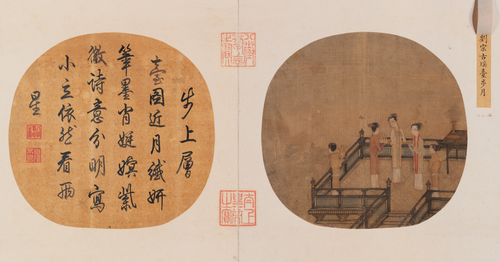 劉宗古瑤臺步月
步上層
臺固近月纖妍
筆墨肖娉嫇紫
微詩意分明寫
小立依然看兩
星